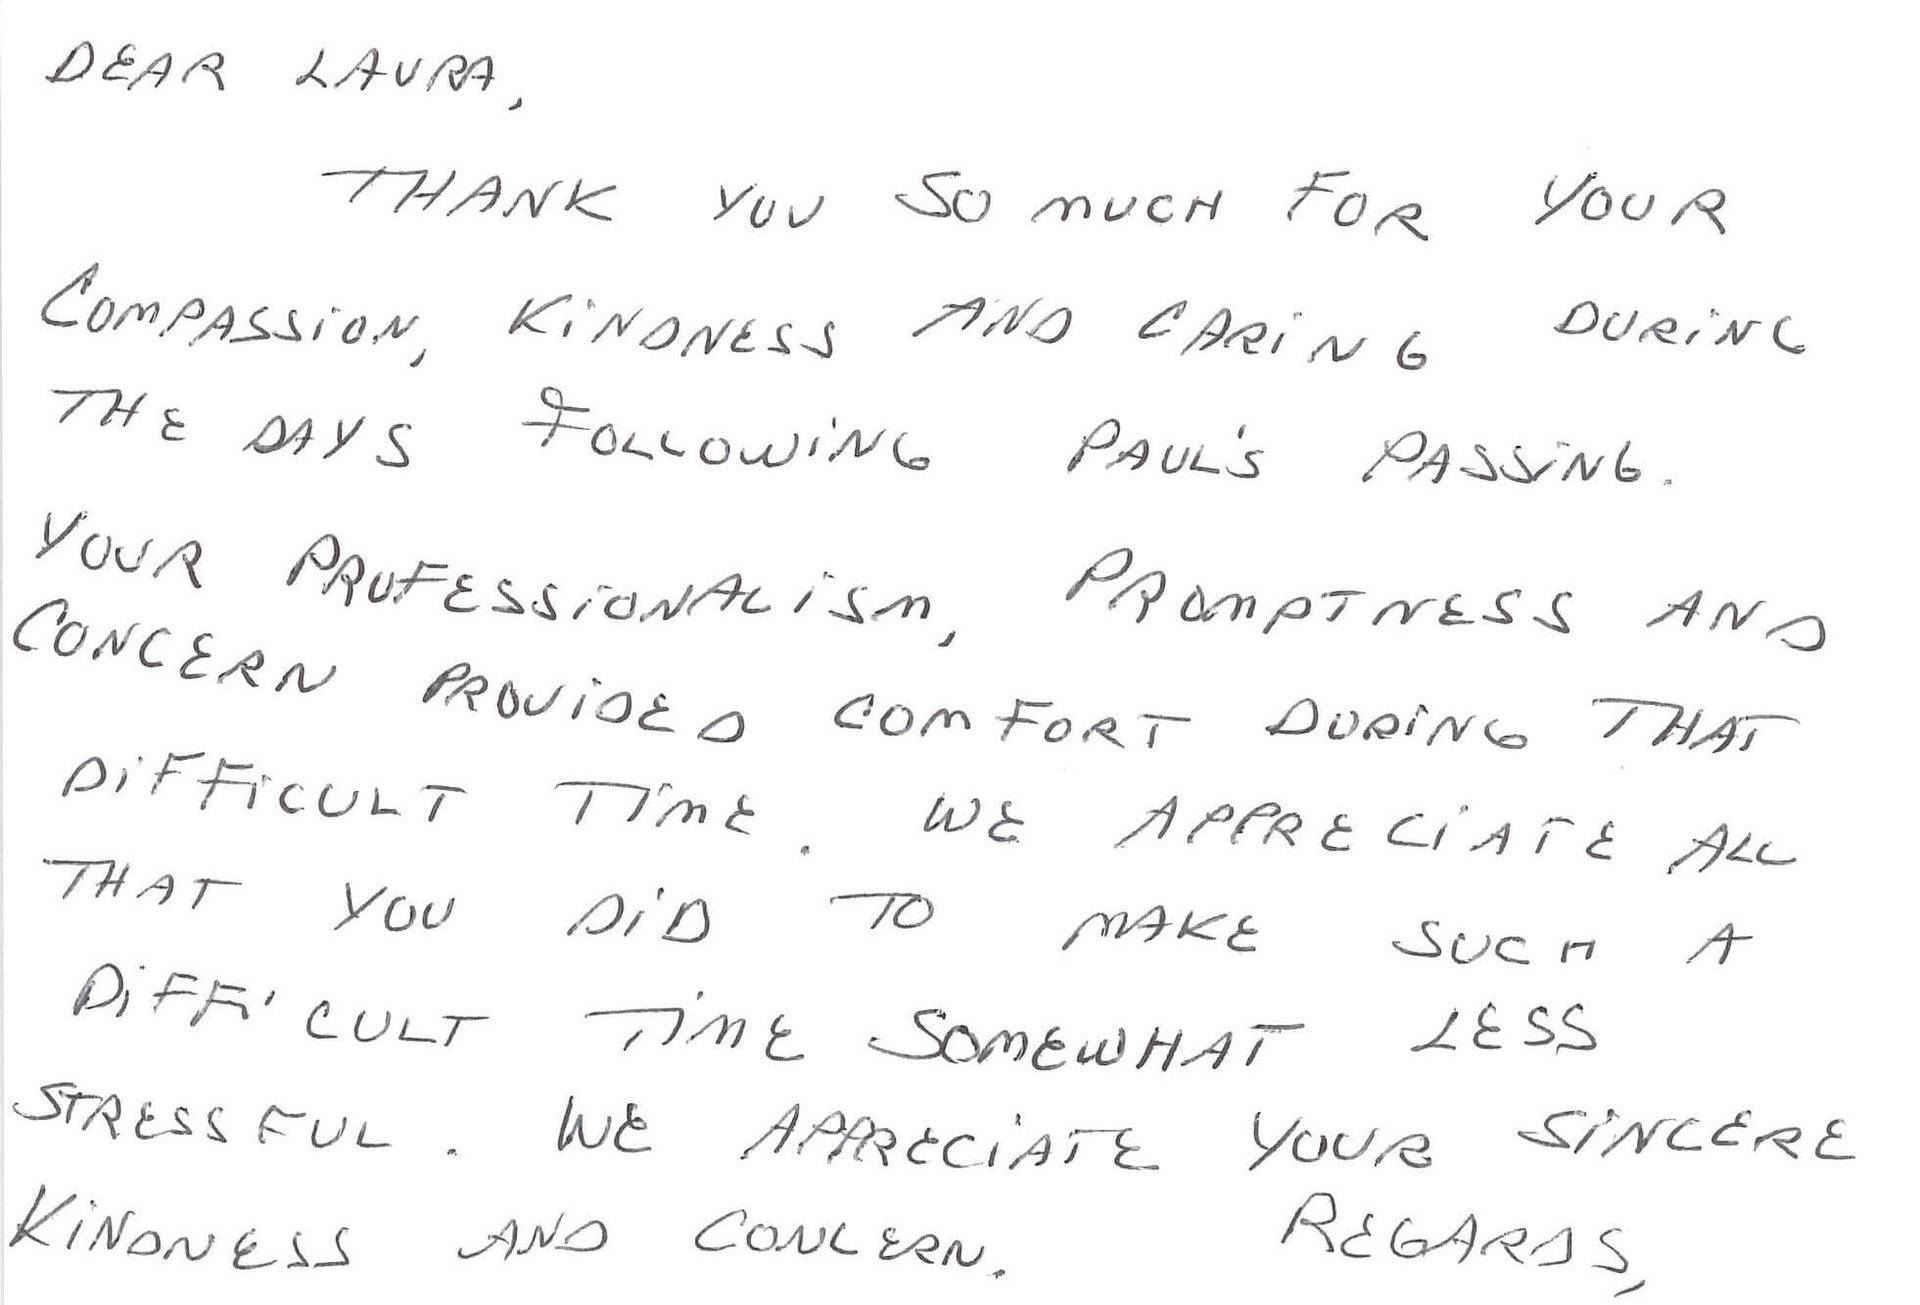 DEAR LAURA,
THANK YOU SO MUCH FOR YOUR
COMPASSION, KiNDNESS AND CARiNG DURiNG
THE DAYS FOLLOWiNG PAUL'S PASSiNG.
YOUR PROFESSiONALiSM, PROMPTNESS AND
CONCERN PROViDED COMFORT DURiNG THAT
DiFFiCULT TiME. WE APPRECiATE ALL
THAT YOU DiD TO MAKE SUCH A
DiFFiCULT TiME SOMEWHAT LESS
STRESSFUL. WE APPRECiATE YOUR SiNCERE
KiNDNESS AND CONCERN. REGARDS,